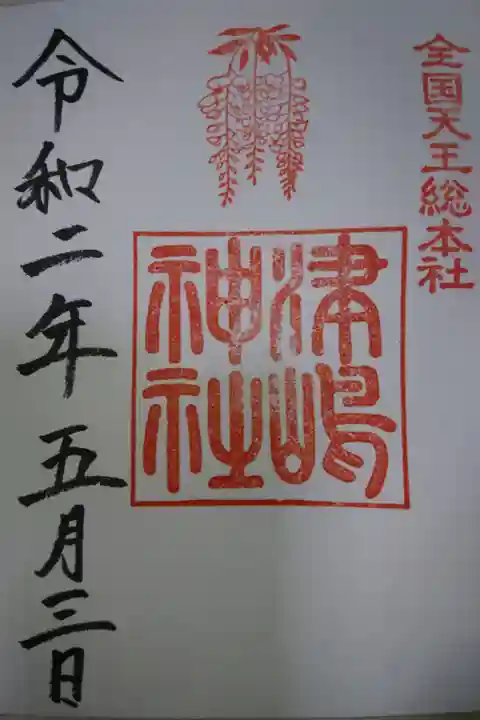 全国天王総本社
津嶋
神社
令和二年五月三日